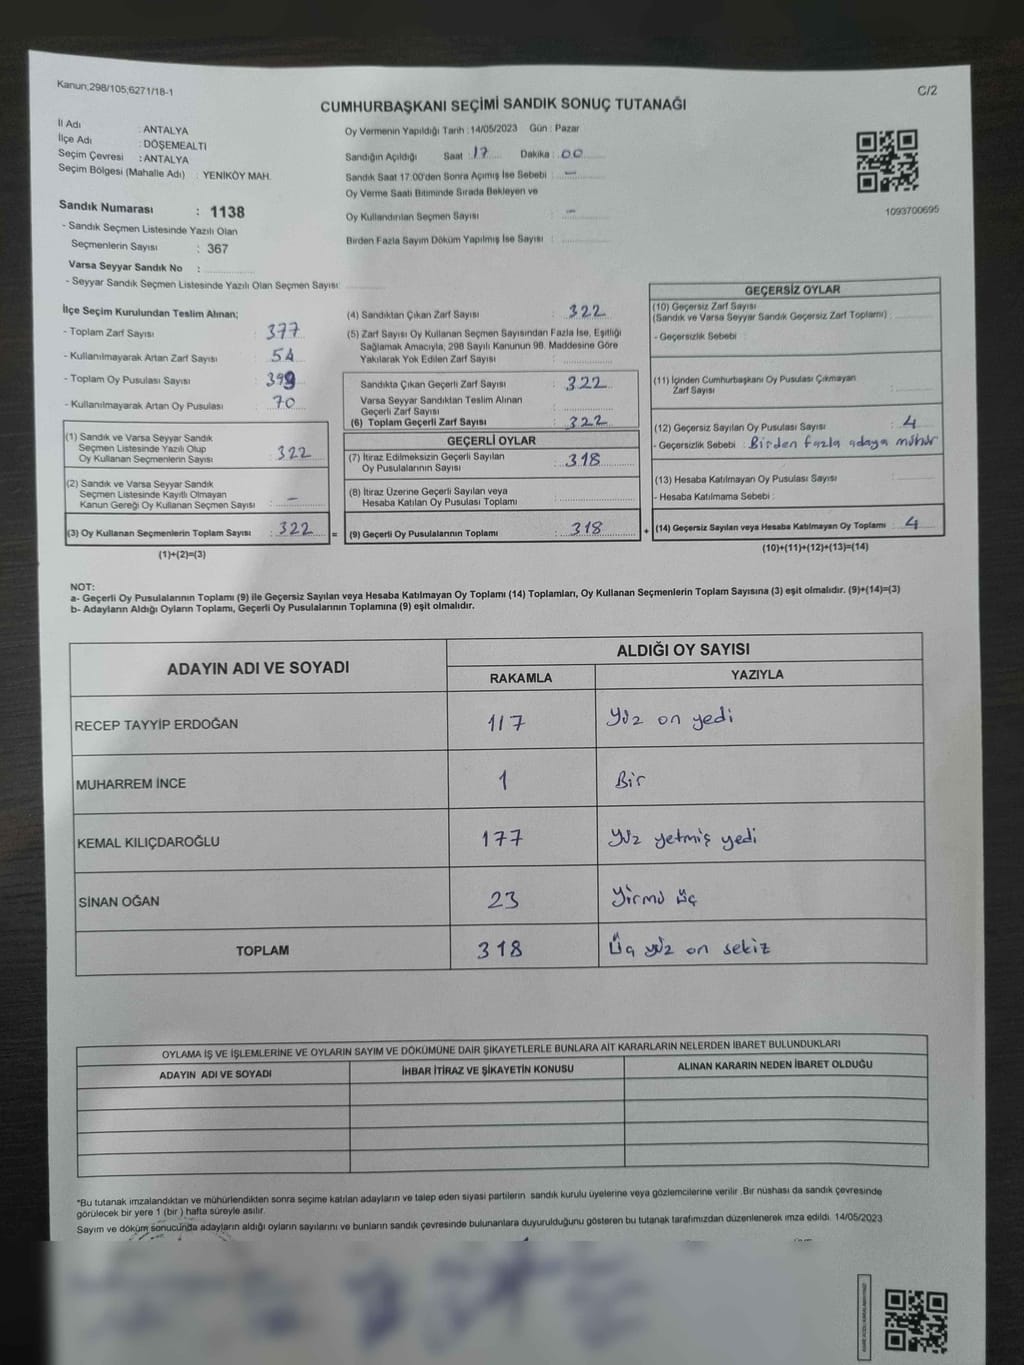 Kanun;298/105;6271/18-1
C/2
CUMHURBAŞKANI SEÇİMİ SANDIK SONUÇ TUTANAĞI
İl Adı : ANTALYA
İlçe Adı : DÖŞEMEALTI
Seçim Çevresi : ANTALYA
Seçim Bölgesi (Mahalle Adı) : YENİKÖY MAH.
Sandık Numarası : 1138
- Sandık Seçmen Listesinde Yazılı Olan
Seçmenlerin Sayısı : 367
Varsa Seyyar Sandık No :
- Seyyar Sandık Seçmen Listesinde Yazılı Olan Seçmen Sayısı:
Oy Vermenin Yapıldığı Tarih : 14/05/2023 Gün : Pazar
Sandığın Açıldığı Saat : 17 Dakika : 00
Sandık Saat 17:00'den Sonra Açımış İse Sebebi : —
Oy Verme Saati Bitiminde Sırada Bekleyen ve
Oy Kullandırılan Seçmen Sayısı : —
Birden Fazla Sayım Döküm Yapılmış İse Sayısı :
1093700695
İlçe Seçim Kurulundan Teslim Alınan;
- Toplam Zarf Sayısı : 377
- Kullanılmayarak Artan Zarf Sayısı :
- Toplam Oy Pusulası Sayısı :
- Kullanılmayarak Artan Oy Pusulası : 70
(1) Sandık ve Varsa Seyyar Sandık
Seçmen Listesinde Yazılı Olup
Oy Kullanan Seçmenlerin Sayısı : 322
(2) Sandık ve Varsa Seyyar Sandık
Seçmen Listesinde Kayıtlı Olmayan
Kanun Gereği Oy Kullanan Seçmen Sayısı : —
(3) Oy Kullanan Seçmenlerin Toplam Sayısı : 322
(1)+(2)=(3)
(4) Sandıktan Çıkan Zarf Sayısı : 322
(5) Zarf Sayısı Oy Kullanan Seçmen Sayısından Fazla İse, Eşitliği
Sağlamak Amacıyla, 298 Sayılı Kanunun 98. Maddesine Göre
Yakılarak Yok Edilen Zarf Sayısı :
Sandıkta Çıkan Geçerli Zarf Sayısı : 322
Varsa Seyyar Sandıktan Teslim Alınan
Geçerli Zarf Sayısı :
(6) Toplam Geçerli Zarf Sayısı : 322
GEÇERLİ OYLAR
(7) İtiraz Edilmeksizin Geçerli Sayılan
Oy Pusulalarının Sayısı : 318
(8) İtiraz Üzerine Geçerli Sayılan veya
Hesaba Katılan Oy Pusulası Toplamı :
= (9) Geçerli Oy Pusulalarının Toplamı : 318
GEÇERSİZ OYLAR
(10) Geçersiz Zarf Sayısı
(Sandık ve Varsa Seyyar Sandık Geçersiz Zarf Toplamı) :
- Geçersizlik Sebebi :
(11) İçinden Cumhurbaşkanı Oy Pusulası Çıkmayan
Zarf Sayısı :
(12) Geçersiz Sayılan Oy Pusulası Sayısı : 4
- Geçersizlik Sebebi : Birden fazla adaya mühür
(13) Hesaba Katılmayan Oy Pusulası Sayısı :
- Hesaba Katılmama Sebebi :
+ (14) Geçersiz Sayılan veya Hesaba Katılmayan Oy Toplamı : 4
(10)+(11)+(12)+(13)=(14)
NOT:
a- Geçerli Oy Pusulalarının Toplamı (9) ile Geçersiz Sayılan veya Hesaba Katılmayan Oy Toplamı (14) Toplamları, Oy Kullanan Seçmenlerin Toplam Sayısına (3) eşit olmalıdır. (9)+(14)=(3)
b- Adayların Aldığı Oyların Toplamı, Geçerli Oy Pusulalarının Toplamına (9) eşit olmalıdır.
ADAYIN ADI VE SOYADI
ALDIĞI OY SAYISI
RAKAMLA YAZIYLA
RECEP TAYYİP ERDOĞAN 117 Yüz on yedi
MUHARREM İNCE 1 Bir
KEMAL KILIÇDAROĞLU 177 Yüz yetmiş yedi
SİNAN OĞAN 23 Yirmi üç
TOPLAM 318 Üç yüz on sekiz
OYLAMA İŞ VE İŞLEMLERİNE VE OYLARIN SAYIM VE DÖKÜMÜNE DAİR ŞİKAYETLERLE BUNLARA AİT KARARLARIN NELERDEN İBARET BULUNDUKLARI
ADAYIN ADI VE SOYADI İHBAR İTİRAZ VE ŞİKAYETİN KONUSU ALINAN KARARIN NEDEN İBARET OLDUĞU
*Bu tutanak imzalandıktan ve mühürlendikten sonra seçime katılan adayların ve talep eden siyasi partilerin sandık kurulu üyelerine veya gözlemcilerine verilir .Bir nüshası da sandık çevresinde
görülecek bir yere 1 (bir ) hafta süreyle asılır.
Sayım ve döküm sonucunda adayların aldığı oyların sayılarını ve bunların sandık çevresinde bulunanlara duyurulduğunu gösteren bu tutanak tarafımızdan düzenlenerek imza edildi. 14/05/2023